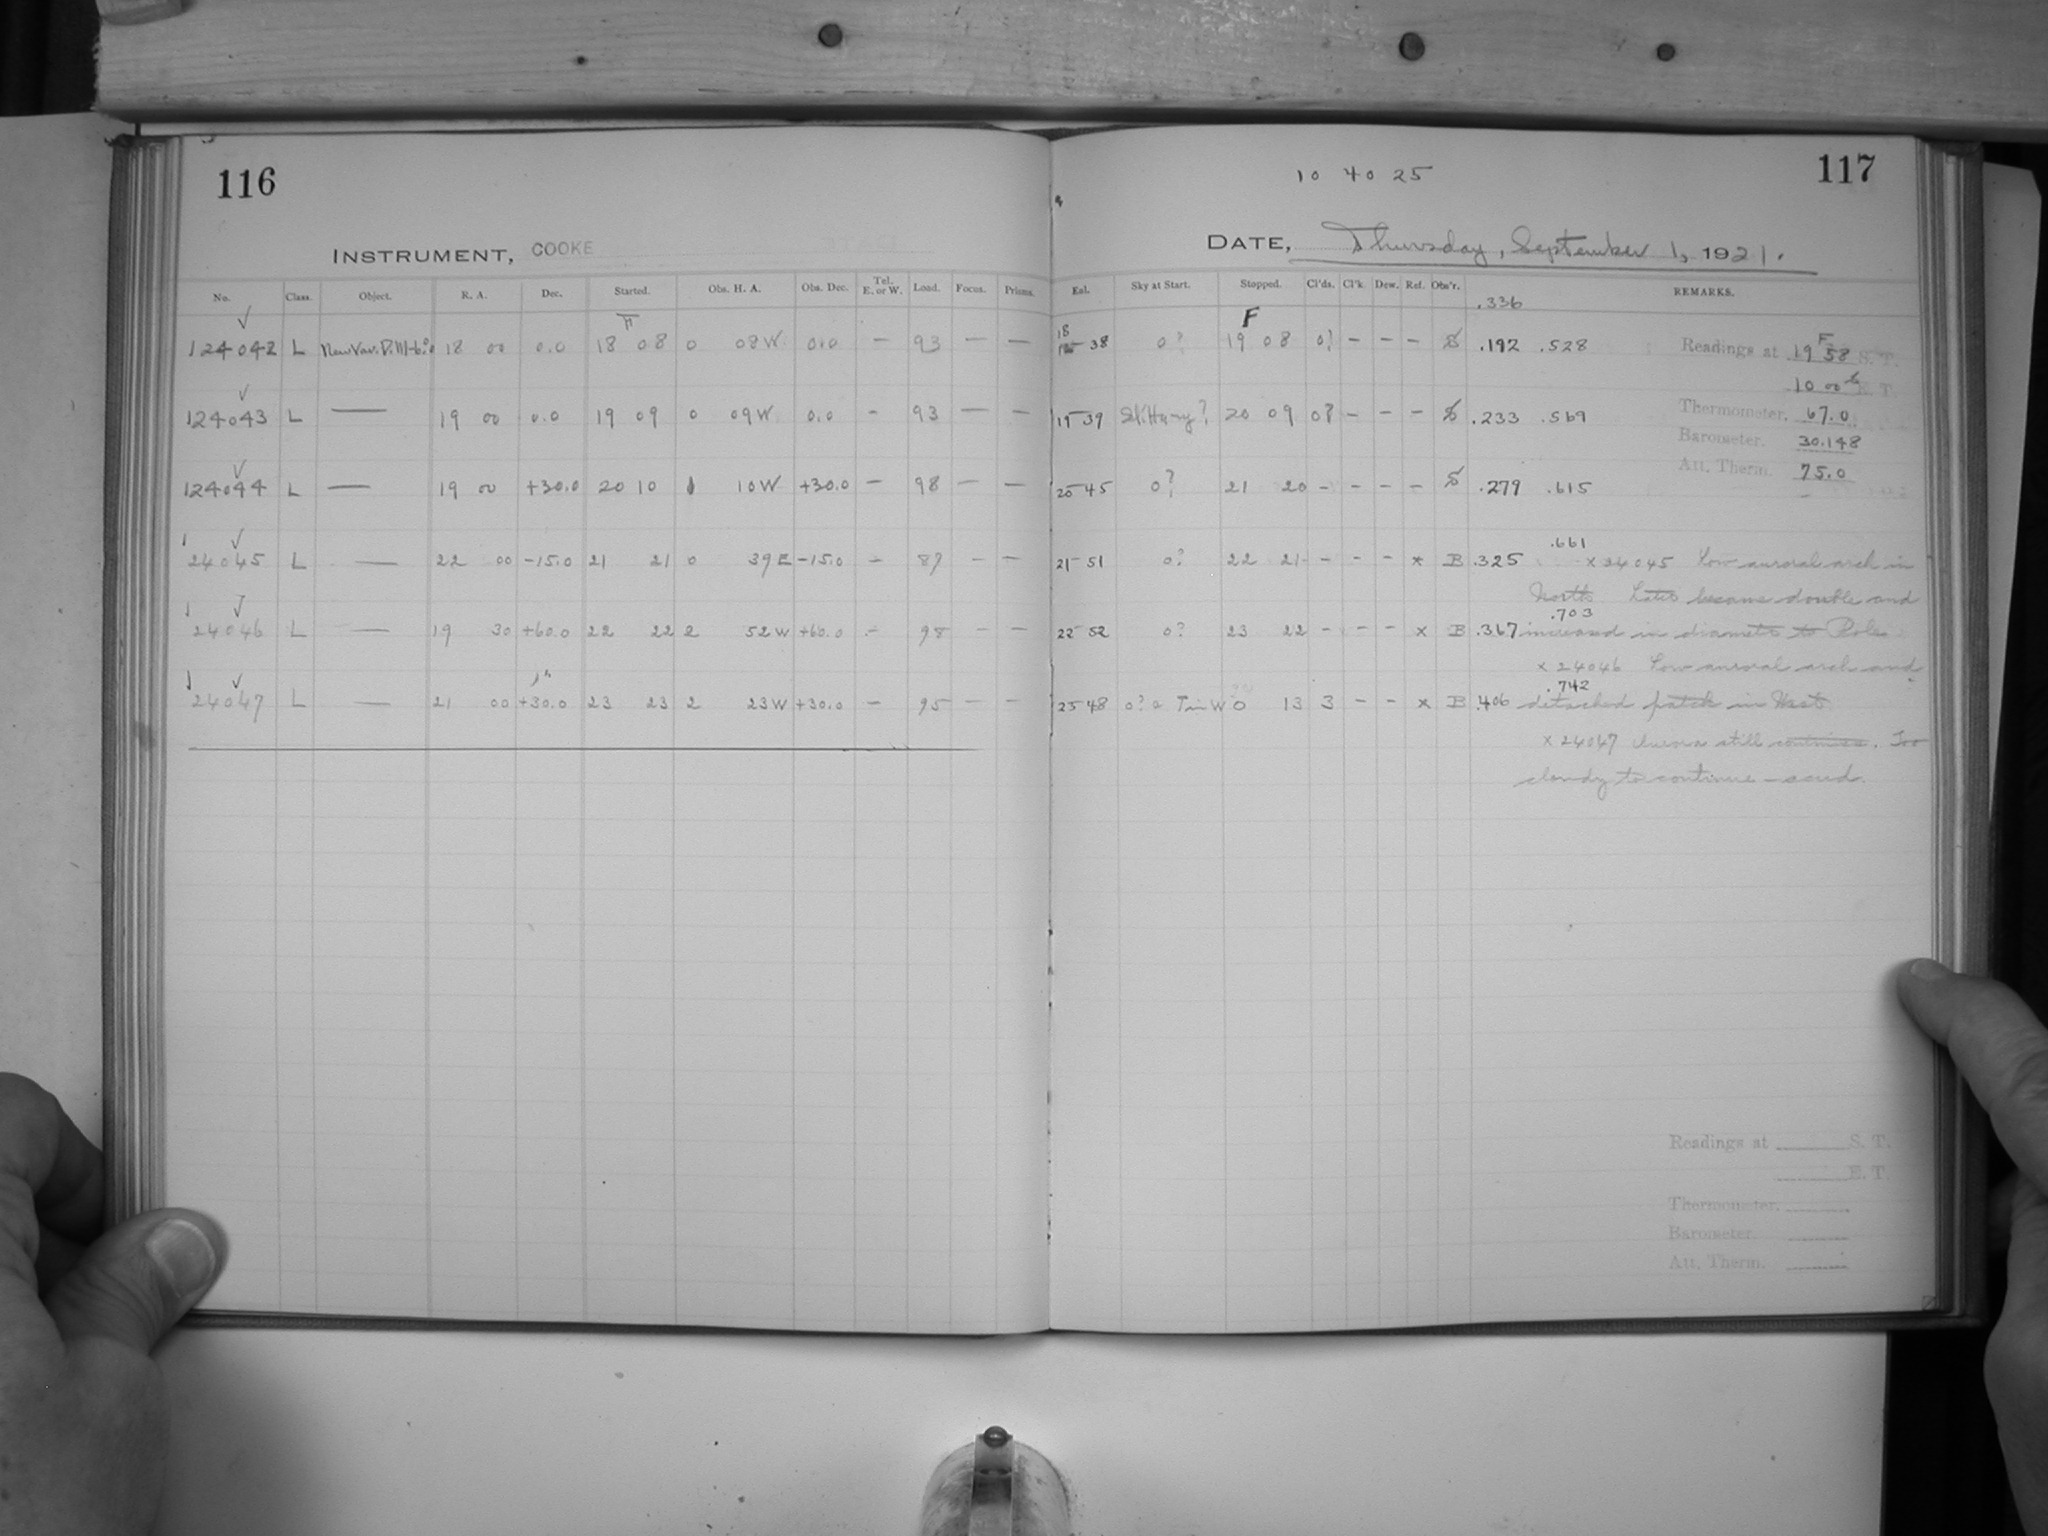 116
INSTRUMENT, COOKE
No. Class. Object. R. A. Dec. Started. Obs. H. A. Obs. Dec. Tel. E. or W. Load. Focus. Prisms.
124042 L New Var. D.M-6° 18 00 0.0 18 08 0 08W 0.0 — 93 — —
124043 L — 19 00 0.0 19 09 0 09W 0.0 - 93 — —
124044 L — 19 00 +30.0 20 10 1 10W +30.0 — 98 — —
124045 L — 22 00 -15.0 21 21 0 39E -15.0 — 87 - —
124046 L — 19 30 +60.0 22 22 2 52W +60.0 - 98 - -
124047 L — 21 00 +30.0 23 23 2 23W +30.0 — 95 - -
10 40 25
117
DATE, Thursday, September 1, 1921.
Eal. Sky at Start. Stopped. Cl'ds. Cl'k. Dew. Ref. Obs'r. REMARKS.
.336
F
18 38 0? 19 08 0? - - - S .192 .528
19 39 Sl. Hazy? 20 09 0? - - - S .233 .569
20 45 0? 21 20 - - - - S .279 .615
21 51 0? 22 21 - - - x B .325 .661 x 24045 Low auroral arch in
North Later became double and
22 52 0? 23 22 - - - x B .367 .703 increased in diameter to Pole
x 24046 Low auroral arch and
23 48 0? 0 13 3 - - x B .406 .742 detached patch in West
x 24047 Aurora still continues. Too
cloudy to continue - scud.
Readings at 19 58 S. T.
10 00 E. T.
Thermometer. 67.0
Barometer. 30.148
Att. Therm. 75.0
Readings at S. T.
E. T.
Thermometer.
Barometer.
Att. Therm.